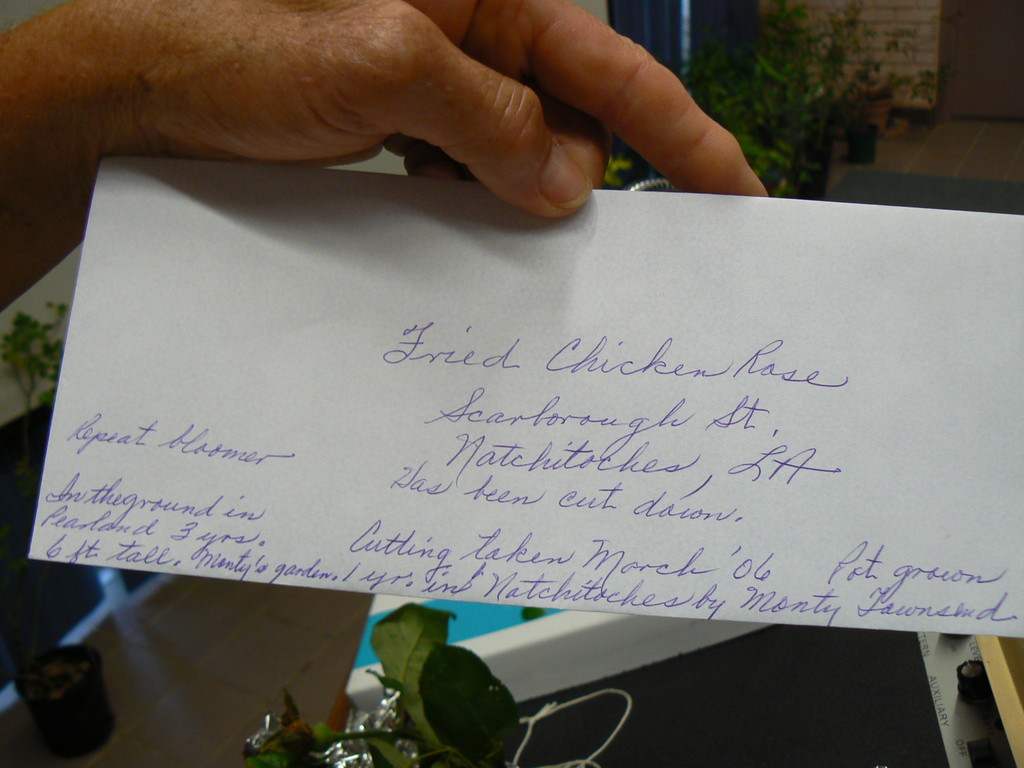 Fried Chicken Rose
Scarborough St.
Natchitoches, LA
Has been cut down.
Repeat bloomer
In the ground in
Pearland 3 yrs.
6 ft. tall. Monty's garden.
Cutting taken March '06
Pot grown
1 yr. in Natchitoches by Monty Townsend
AUXILIARY
OFF